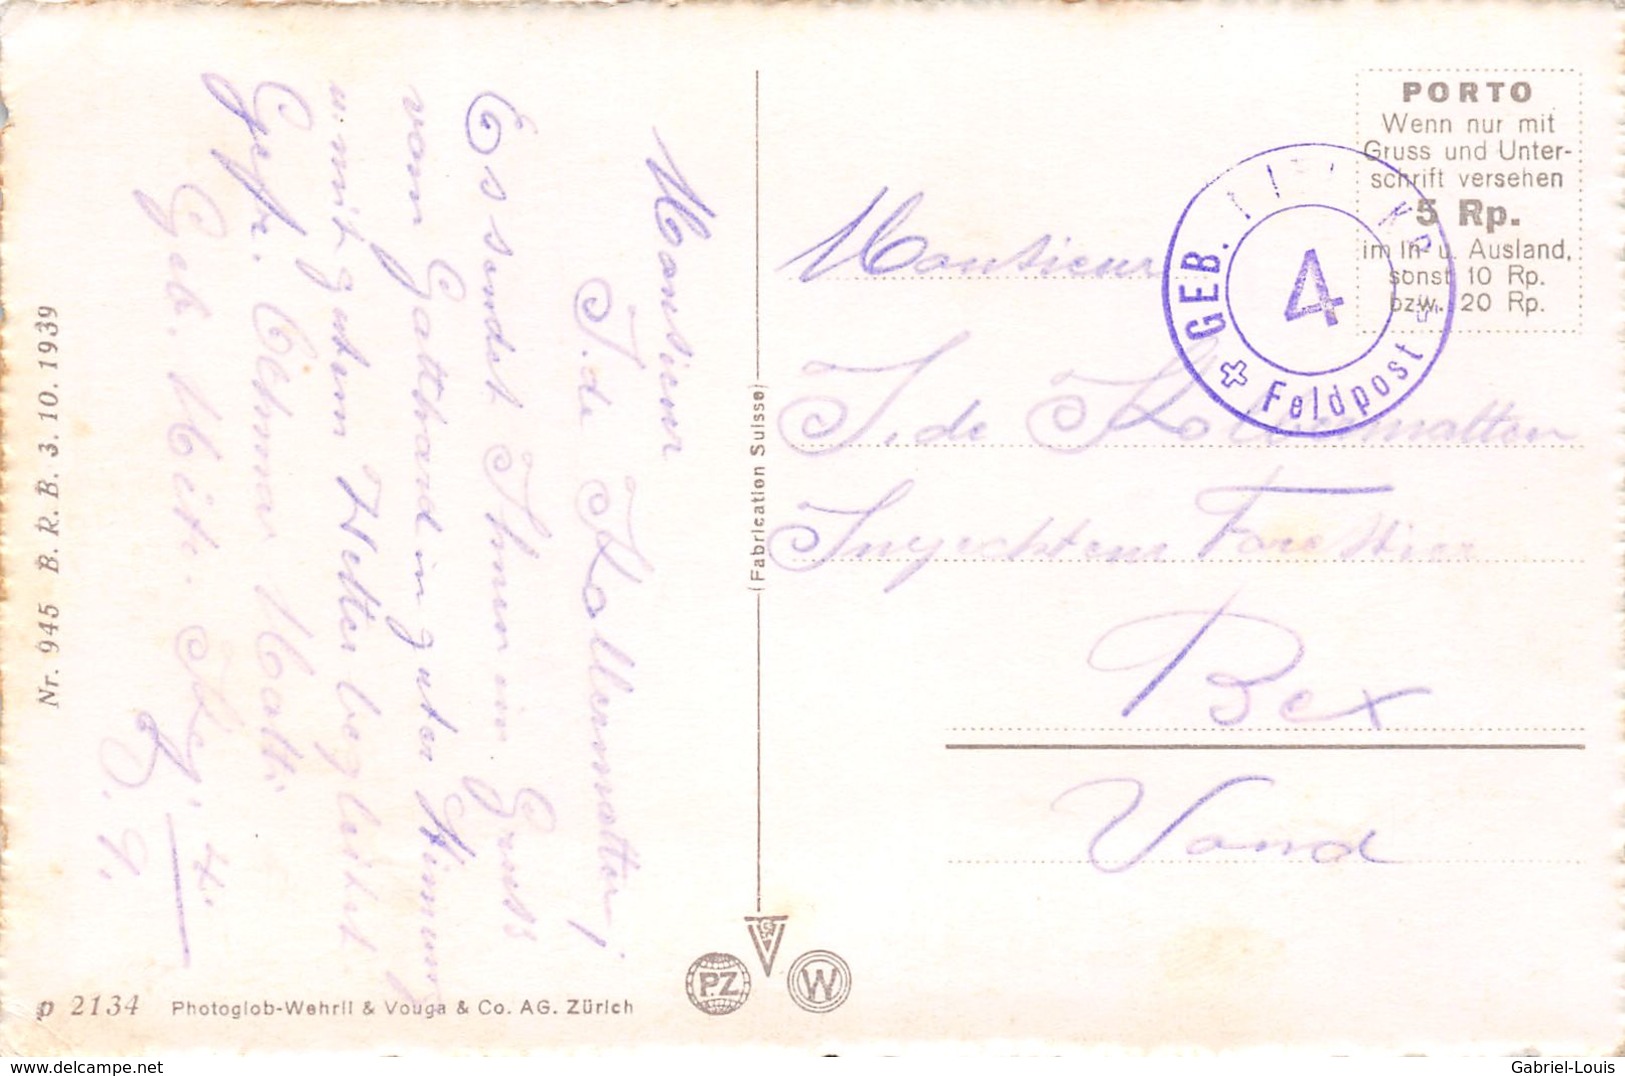 Monsieur
J. de Kallermatten
Es sendet Ihnen ein Gruss
vom Gotthard in guter Stimmung
u. mit gutem Wetter begleitet
Gefr. Matti
Geb. Mitr. 4.
Nr. 945 B. R. B. 3. 10. 1939
p 2134 Photoglob-Wehrli & Vouga & Co. AG. Zürich
(Fabrication Suisse)
P.Z
W
PORTO
Wenn nur mit
Gruss und Unter-
schrift versehen
5 Rp.
im In- u. Ausland,
sonst 10 Rp.
bzw. 20 Rp.
GEB.
4
Feldpost
Monsieur
J. de Kallermatten
Forestier
Bex
Vaud
delcampe.net
Gabriel-Louis